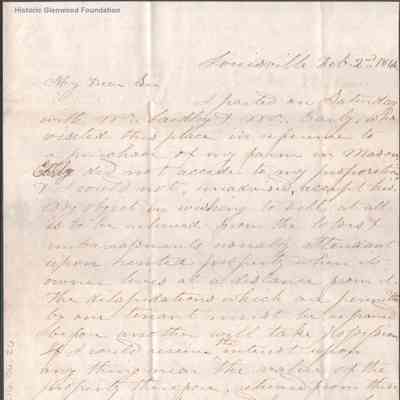 Historic Glenwood Foundation
Louisville Oct. 2nd. 184
My Dear Sir
I parted on Saturday
with Mr. & Mr. Early, who
visited this place in reference to
a purchase of my farm in Mason
did not accede to my proposition
& I could not, unadvised, accept his.
My object in wishing to sell at all
is to be relieved from the losses &
embarrassments usually attendant
upon rented property when its
owner lives at a distance from it.
The delapidations which are permitted
by one tenant must be repaired
before another will take possession
If I could receive the interest upon
any thing near the value of the
property therefore, relieved from these